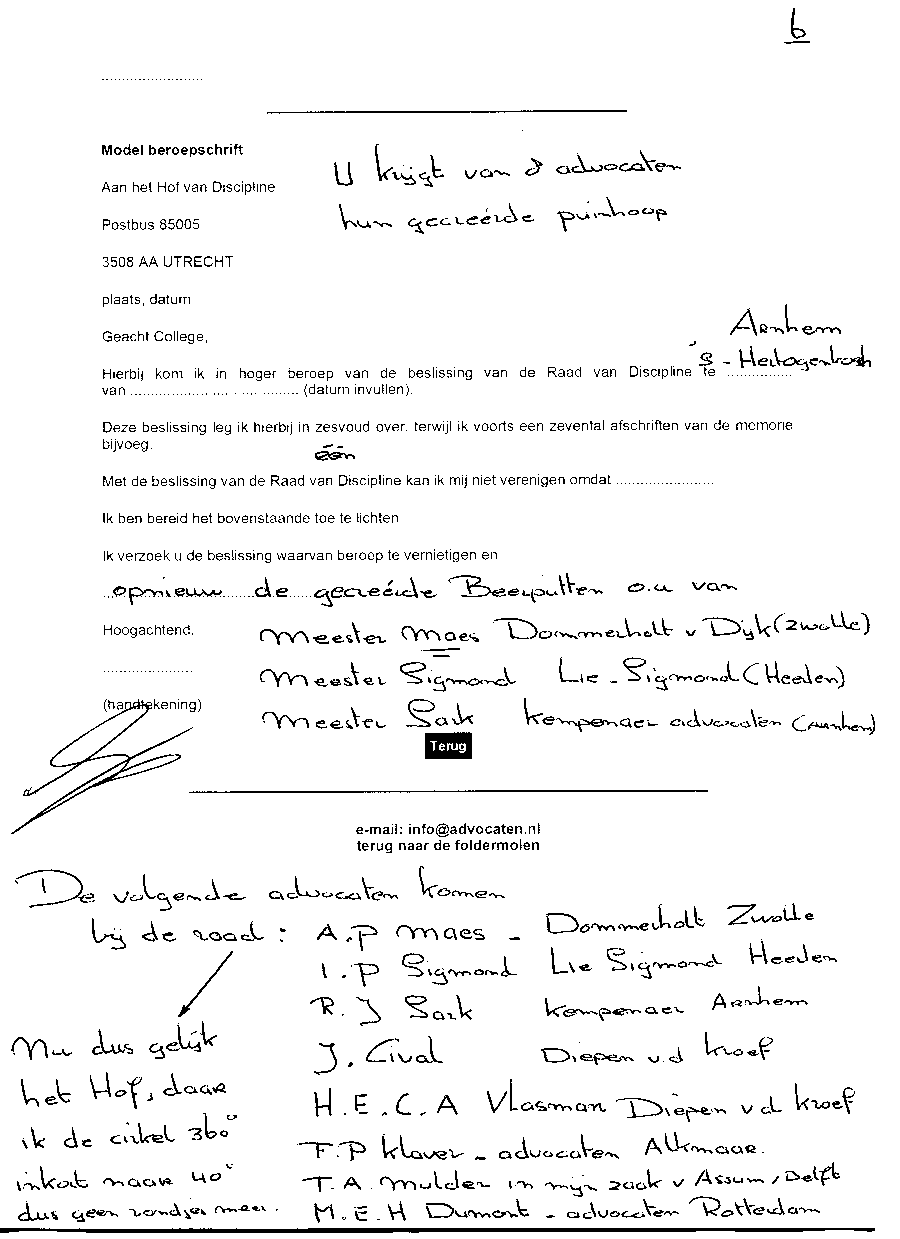 6
.........................
Model beroepschrift
U krijgt van 8 advocaten
Aan het Hof van Discipline
hun gecreëerde puinhoop
Postbus 85005
3508 AA UTRECHT
plaats, datum
Geacht College,
Arnhem
's - Hertogenbosch
Hierbij kom ik in hoger beroep van de beslissing van de Raad van Discipline te ................
van .......................................... (datum invullen).
Deze beslissing leg ik hierbij in zesvoud over, terwijl ik voorts een zevental afschriften van de memorie
bijvoeg.
één
Met de beslissing van de Raad van Discipline kan ik mij niet verenigen omdat ........................
Ik ben bereid het bovenstaande toe te lichten
Ik verzoek u de beslissing waarvan beroep te vernietigen en
opnieuw de gecreëide Beerputten o.a van
Hoogachtend,
Meester Maes Dommerholt v Dyk (Zwolle)
......................
Meester Sigmond Lie - Sigmond (Heerden)
(handtekening)
Meester Sark Kempenaer advocaten (Arnhem)
Terug
e-mail: info@advocaten.nl
terug naar de foldermolen
De volgende advocaten komen
bij de raad : A.P Maes - Dommerholt Zwolle
I.P Sigmond Lie Sigmond Heerden
R.J Sark Kempenaer Arnhem
Nu dus gelijk
J. Cival Diepen v.d Kroef
het Hof, daar
H.E.C.A Vlasman Diepen v d Kroef
ik de cirkel 360°
F.P Klaver - advocaten Alkmaar.
inkort naar 40°
T.A. Mulder in mijn zaak v Assum, Delft
dus geen rondjes meer.
M.E.H Dumont - advocaten Rotterdam